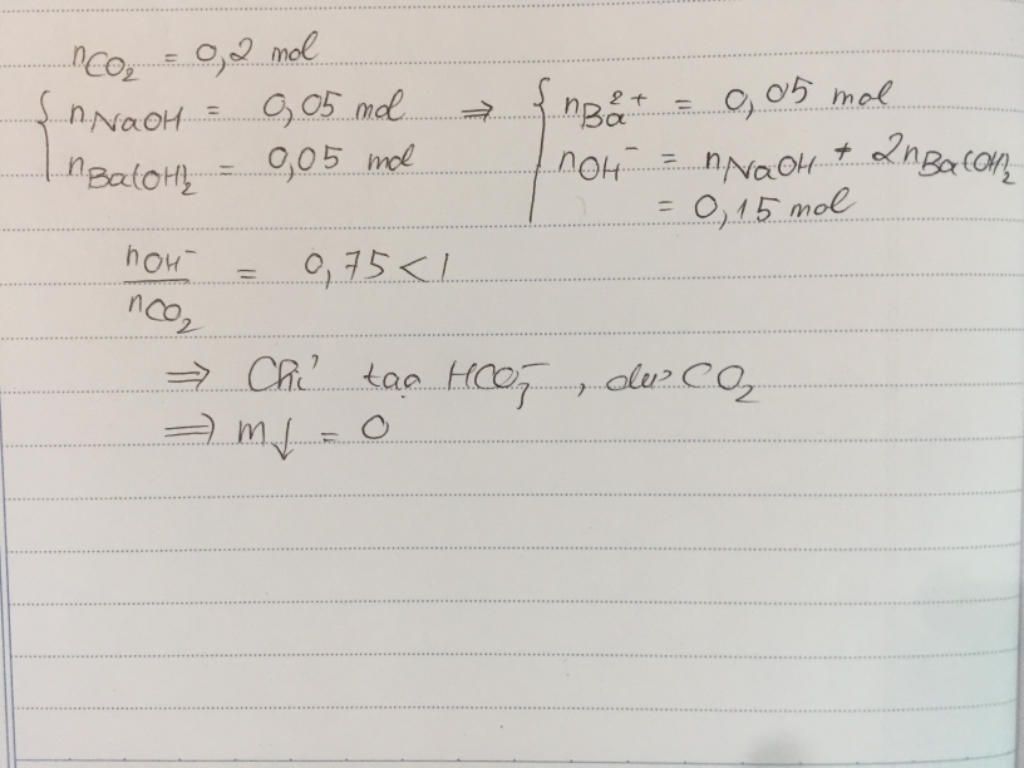 nCO₂ = 0,2 mol
{ nNaOH = 0,05 mol ⇒ { nBa²⁺ = 0,05 mol
nBa(OH)₂ = 0,05 mol nOH⁻ = nNaOH + 2nBa(OH)₂
= 0,15 mol
nOH⁻/nCO₂ = 0,75 < 1
⇒ Chỉ tạo HCO₃⁻, dư CO₂
⇒ m↓ = 0